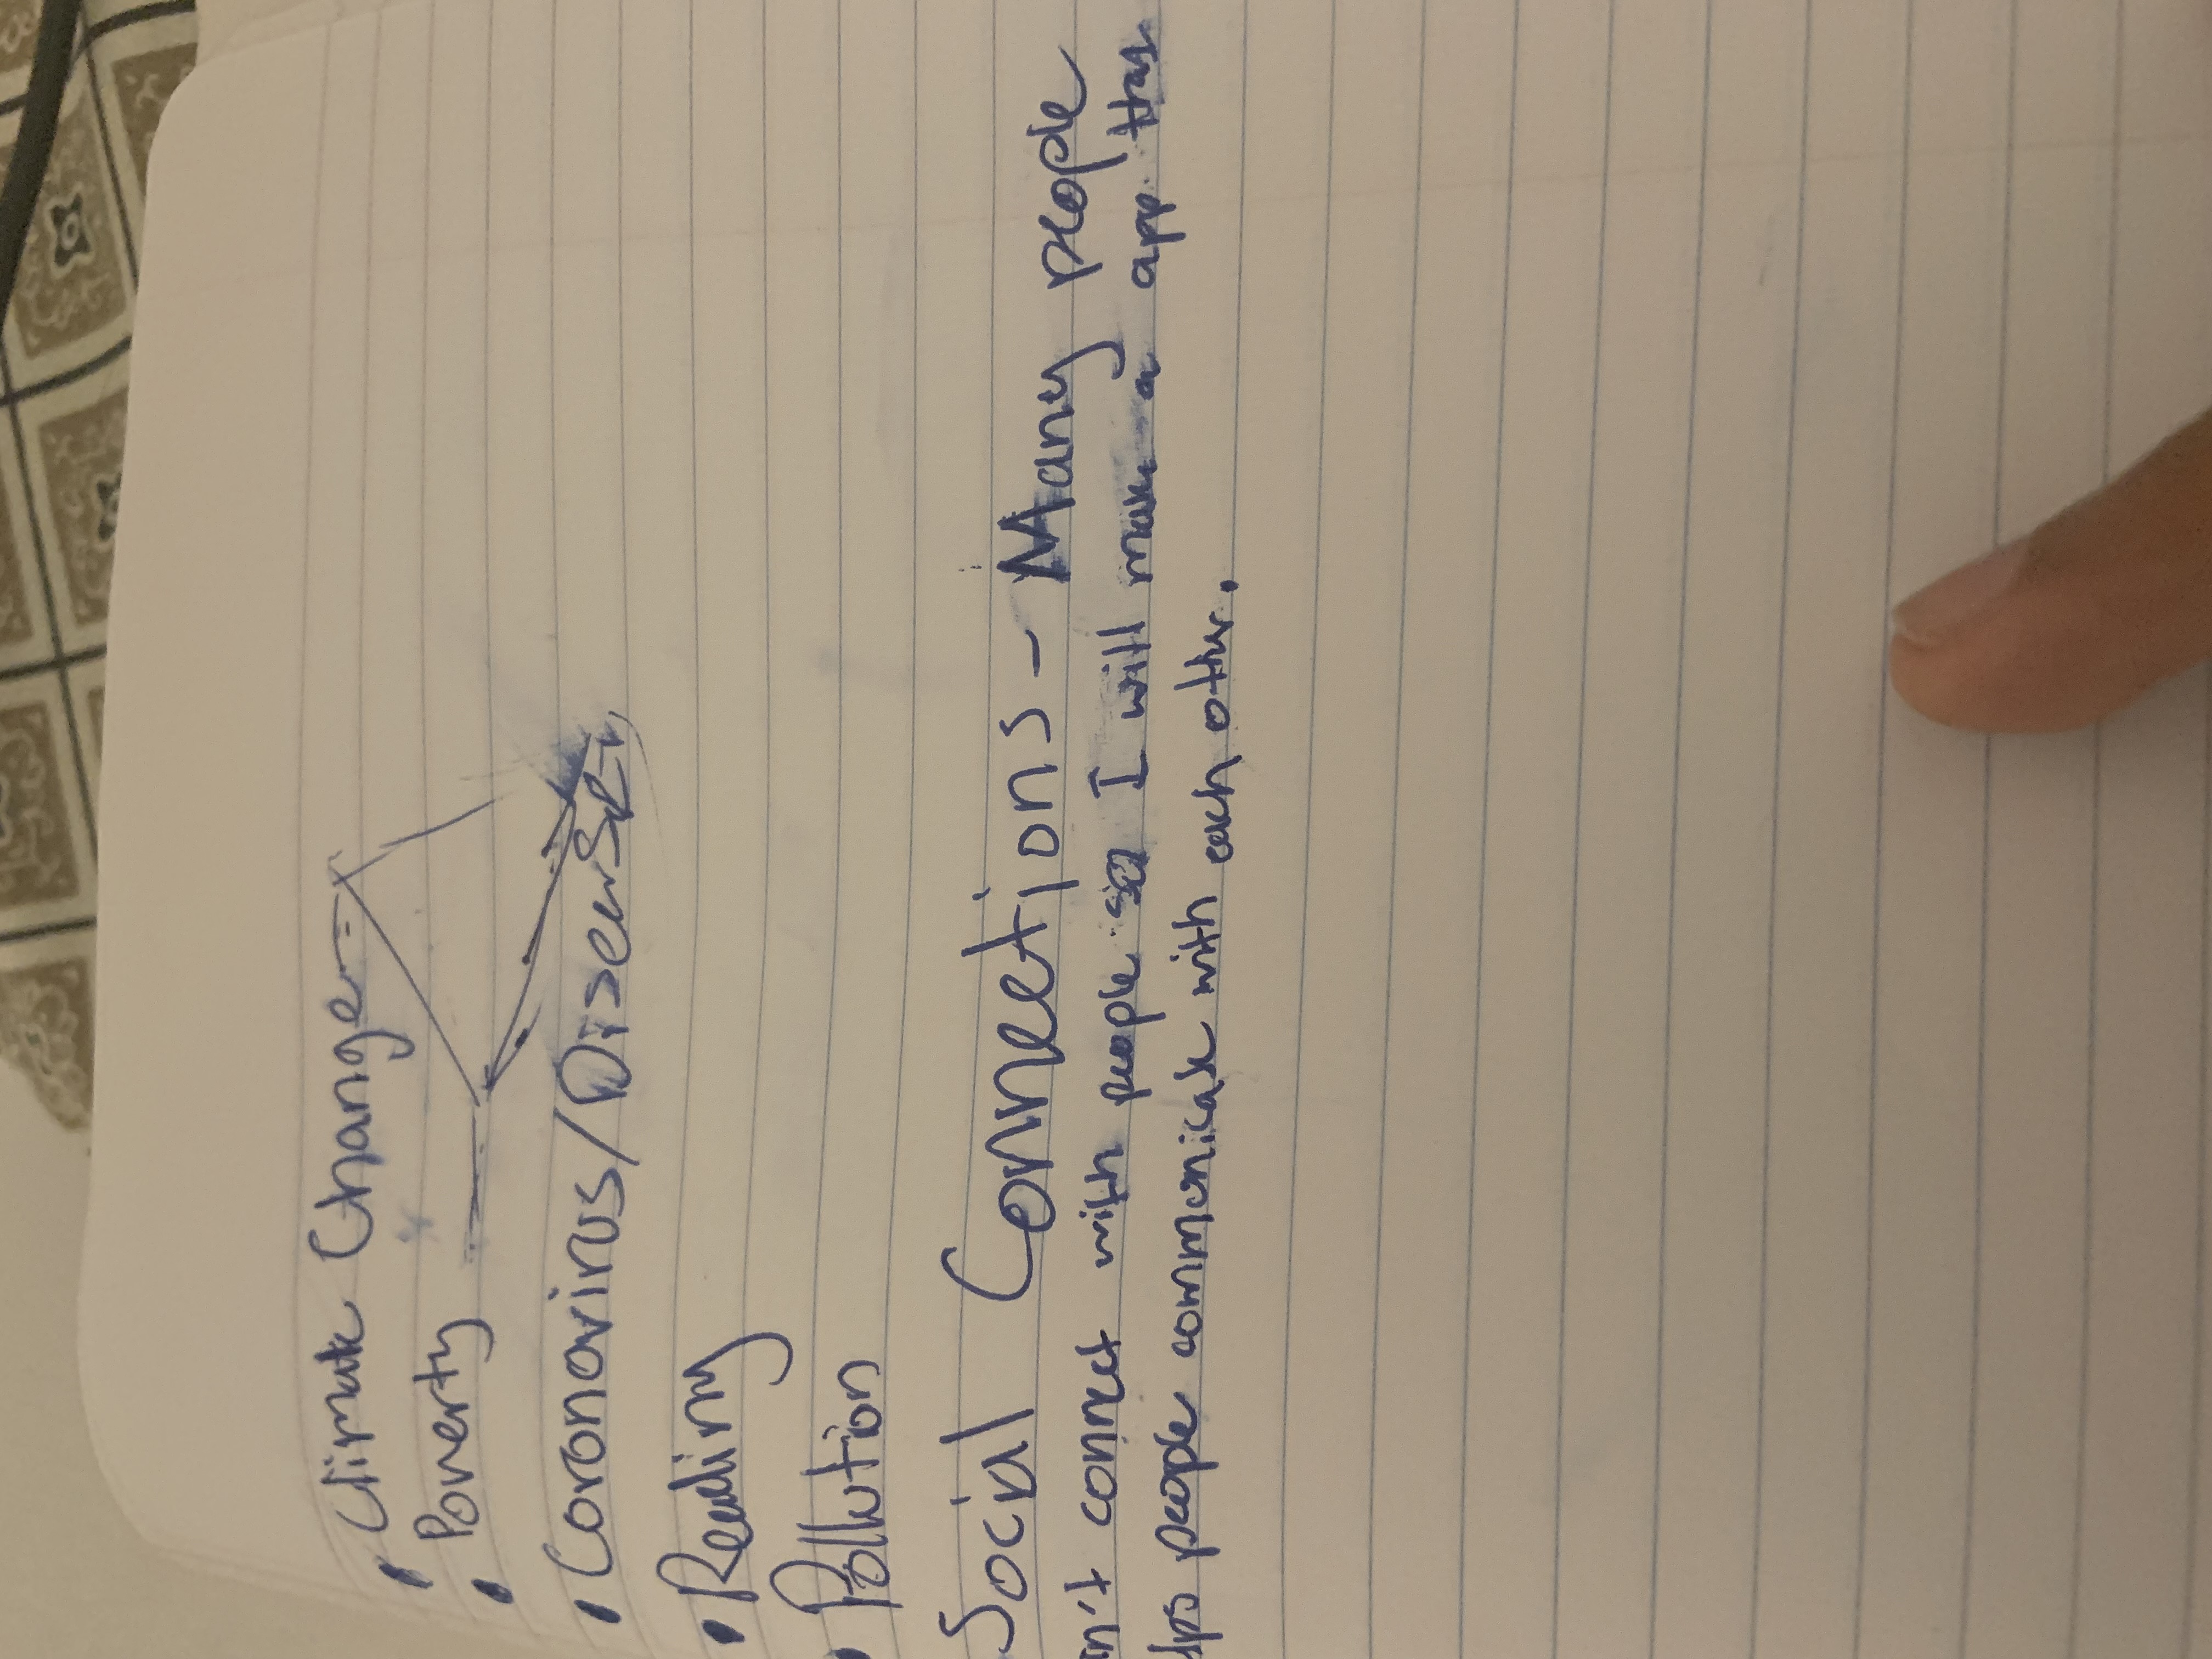 • Climate Change
• Poverty
• Coronavirus/Diseases
• Reading
• Pollution
Social Connections - Many people
n't connect with people so I will make a app that
lps people communicate with each other.